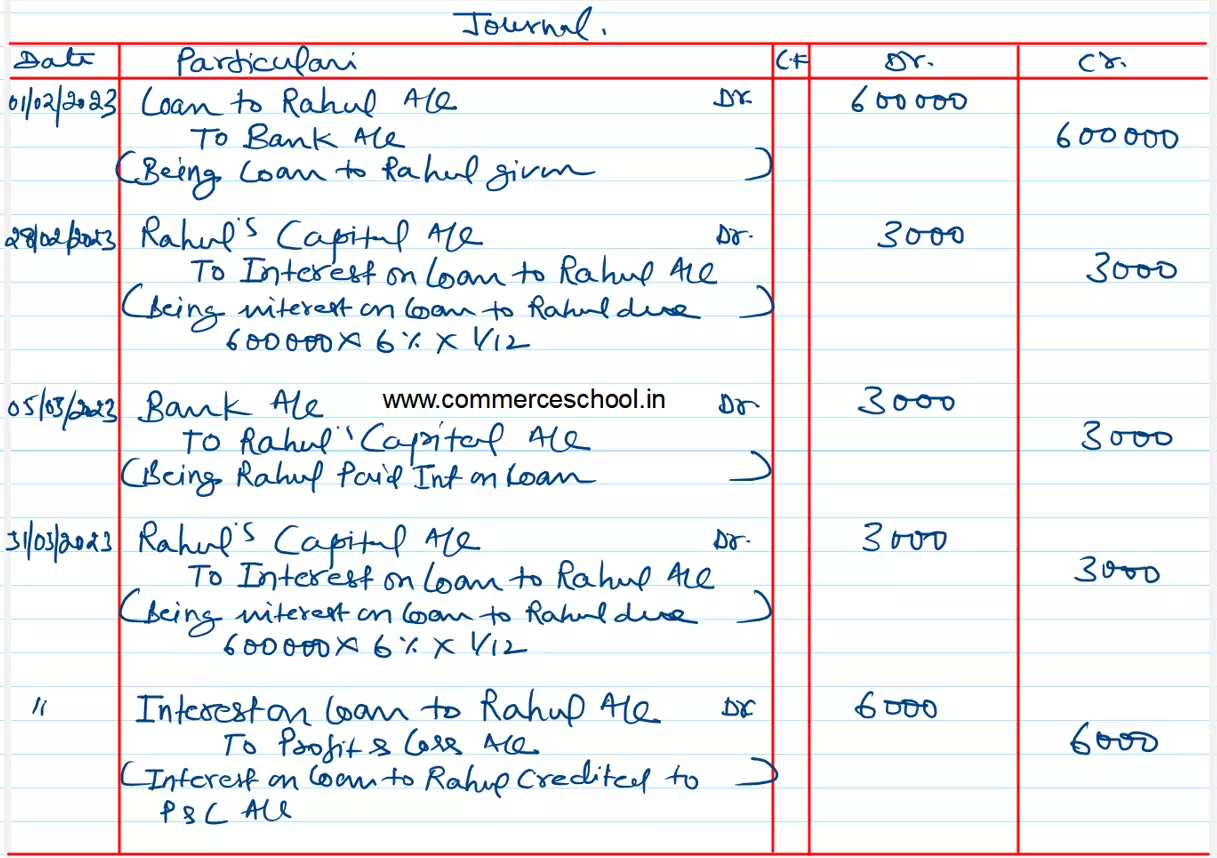 Journal.
Date Particulars L.F Dr. Cr.
01/02/2023 Loan to Rahul A/c Dr. 600000
To Bank A/c 600000
(Being Loan to Rahul given)
28/02/2023 Rahul's Capital A/c Dr. 3000
To Interest on Loan to Rahul A/c 3000
(Being interest on loan to Rahul due)
600000 x 6% x 1/12
05/03/2023 Bank A/c www.commerceschool.in Dr. 3000
To Rahul's Capital A/c 3000
(Being Rahul Paid Int on Loan)
31/03/2023 Rahul's Capital A/c Dr. 3000
To Interest on Loan to Rahul A/c 3000
(Being interest on loan to Rahul due)
600000 x 6% x 1/12
" Interest on Loan to Rahul A/c Dr 6000
To Profit & Loss A/c 6000
(Interest on loan to Rahul Credited to)
P & L A/c